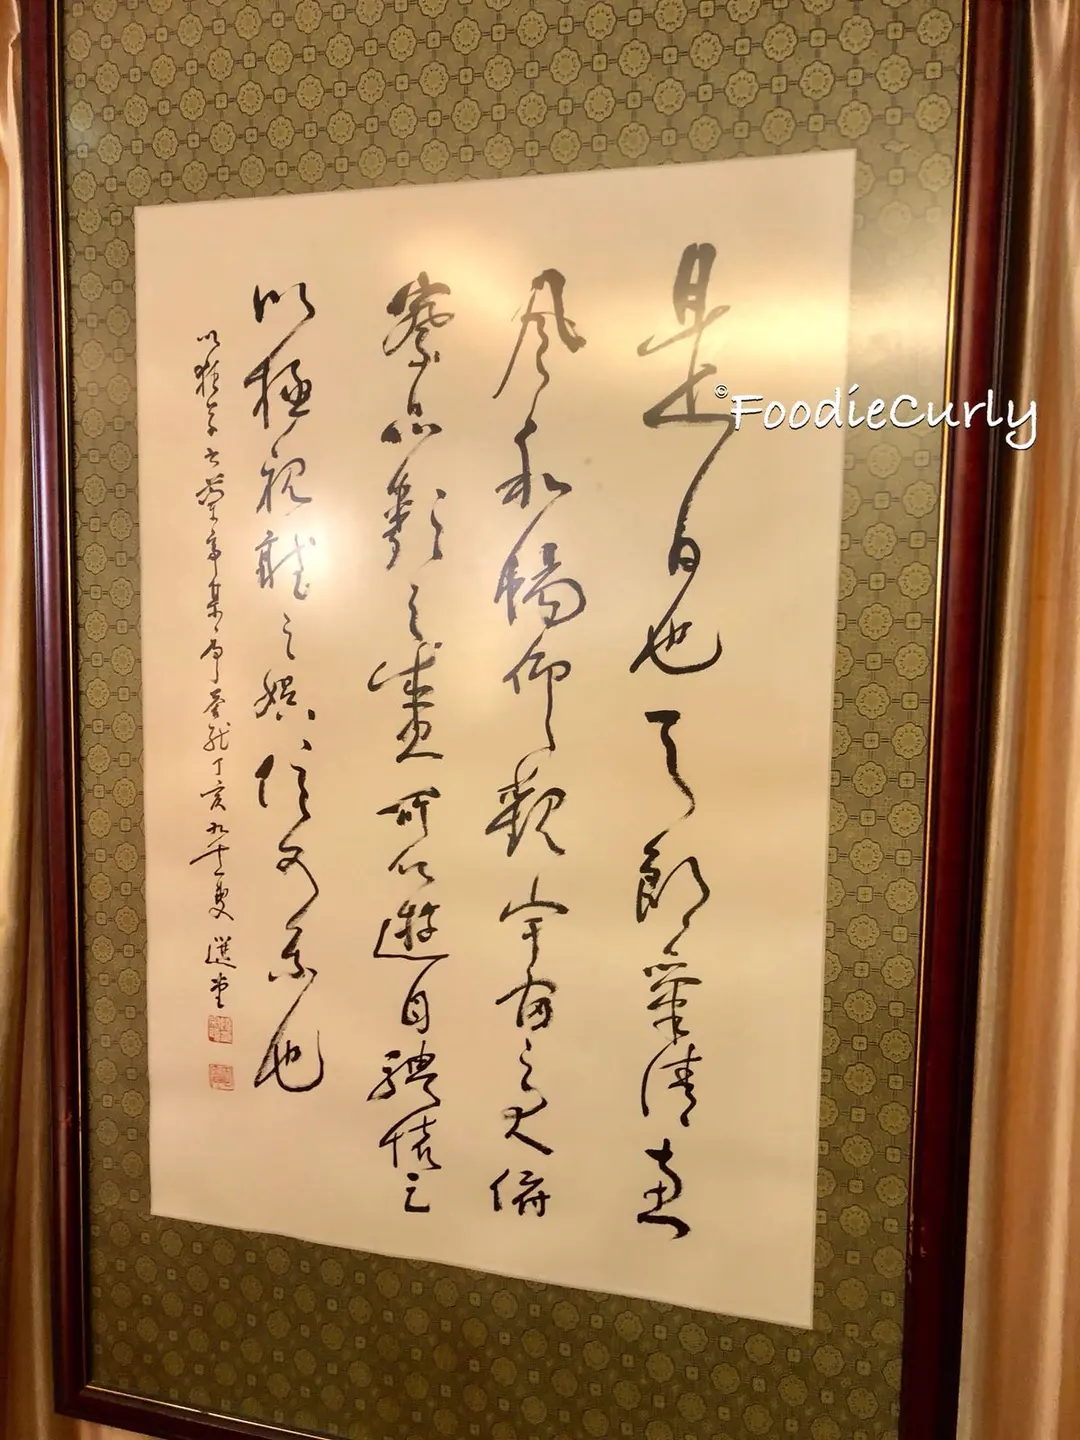 是日也天朗氣清惠
風和暢仰觀宇宙之大俯
察品類之盛所以遊目騁懷足
以極視聽之娛信可樂也
以書蘭亭集序丁亥九十一叟 選堂
©FoodieCurly